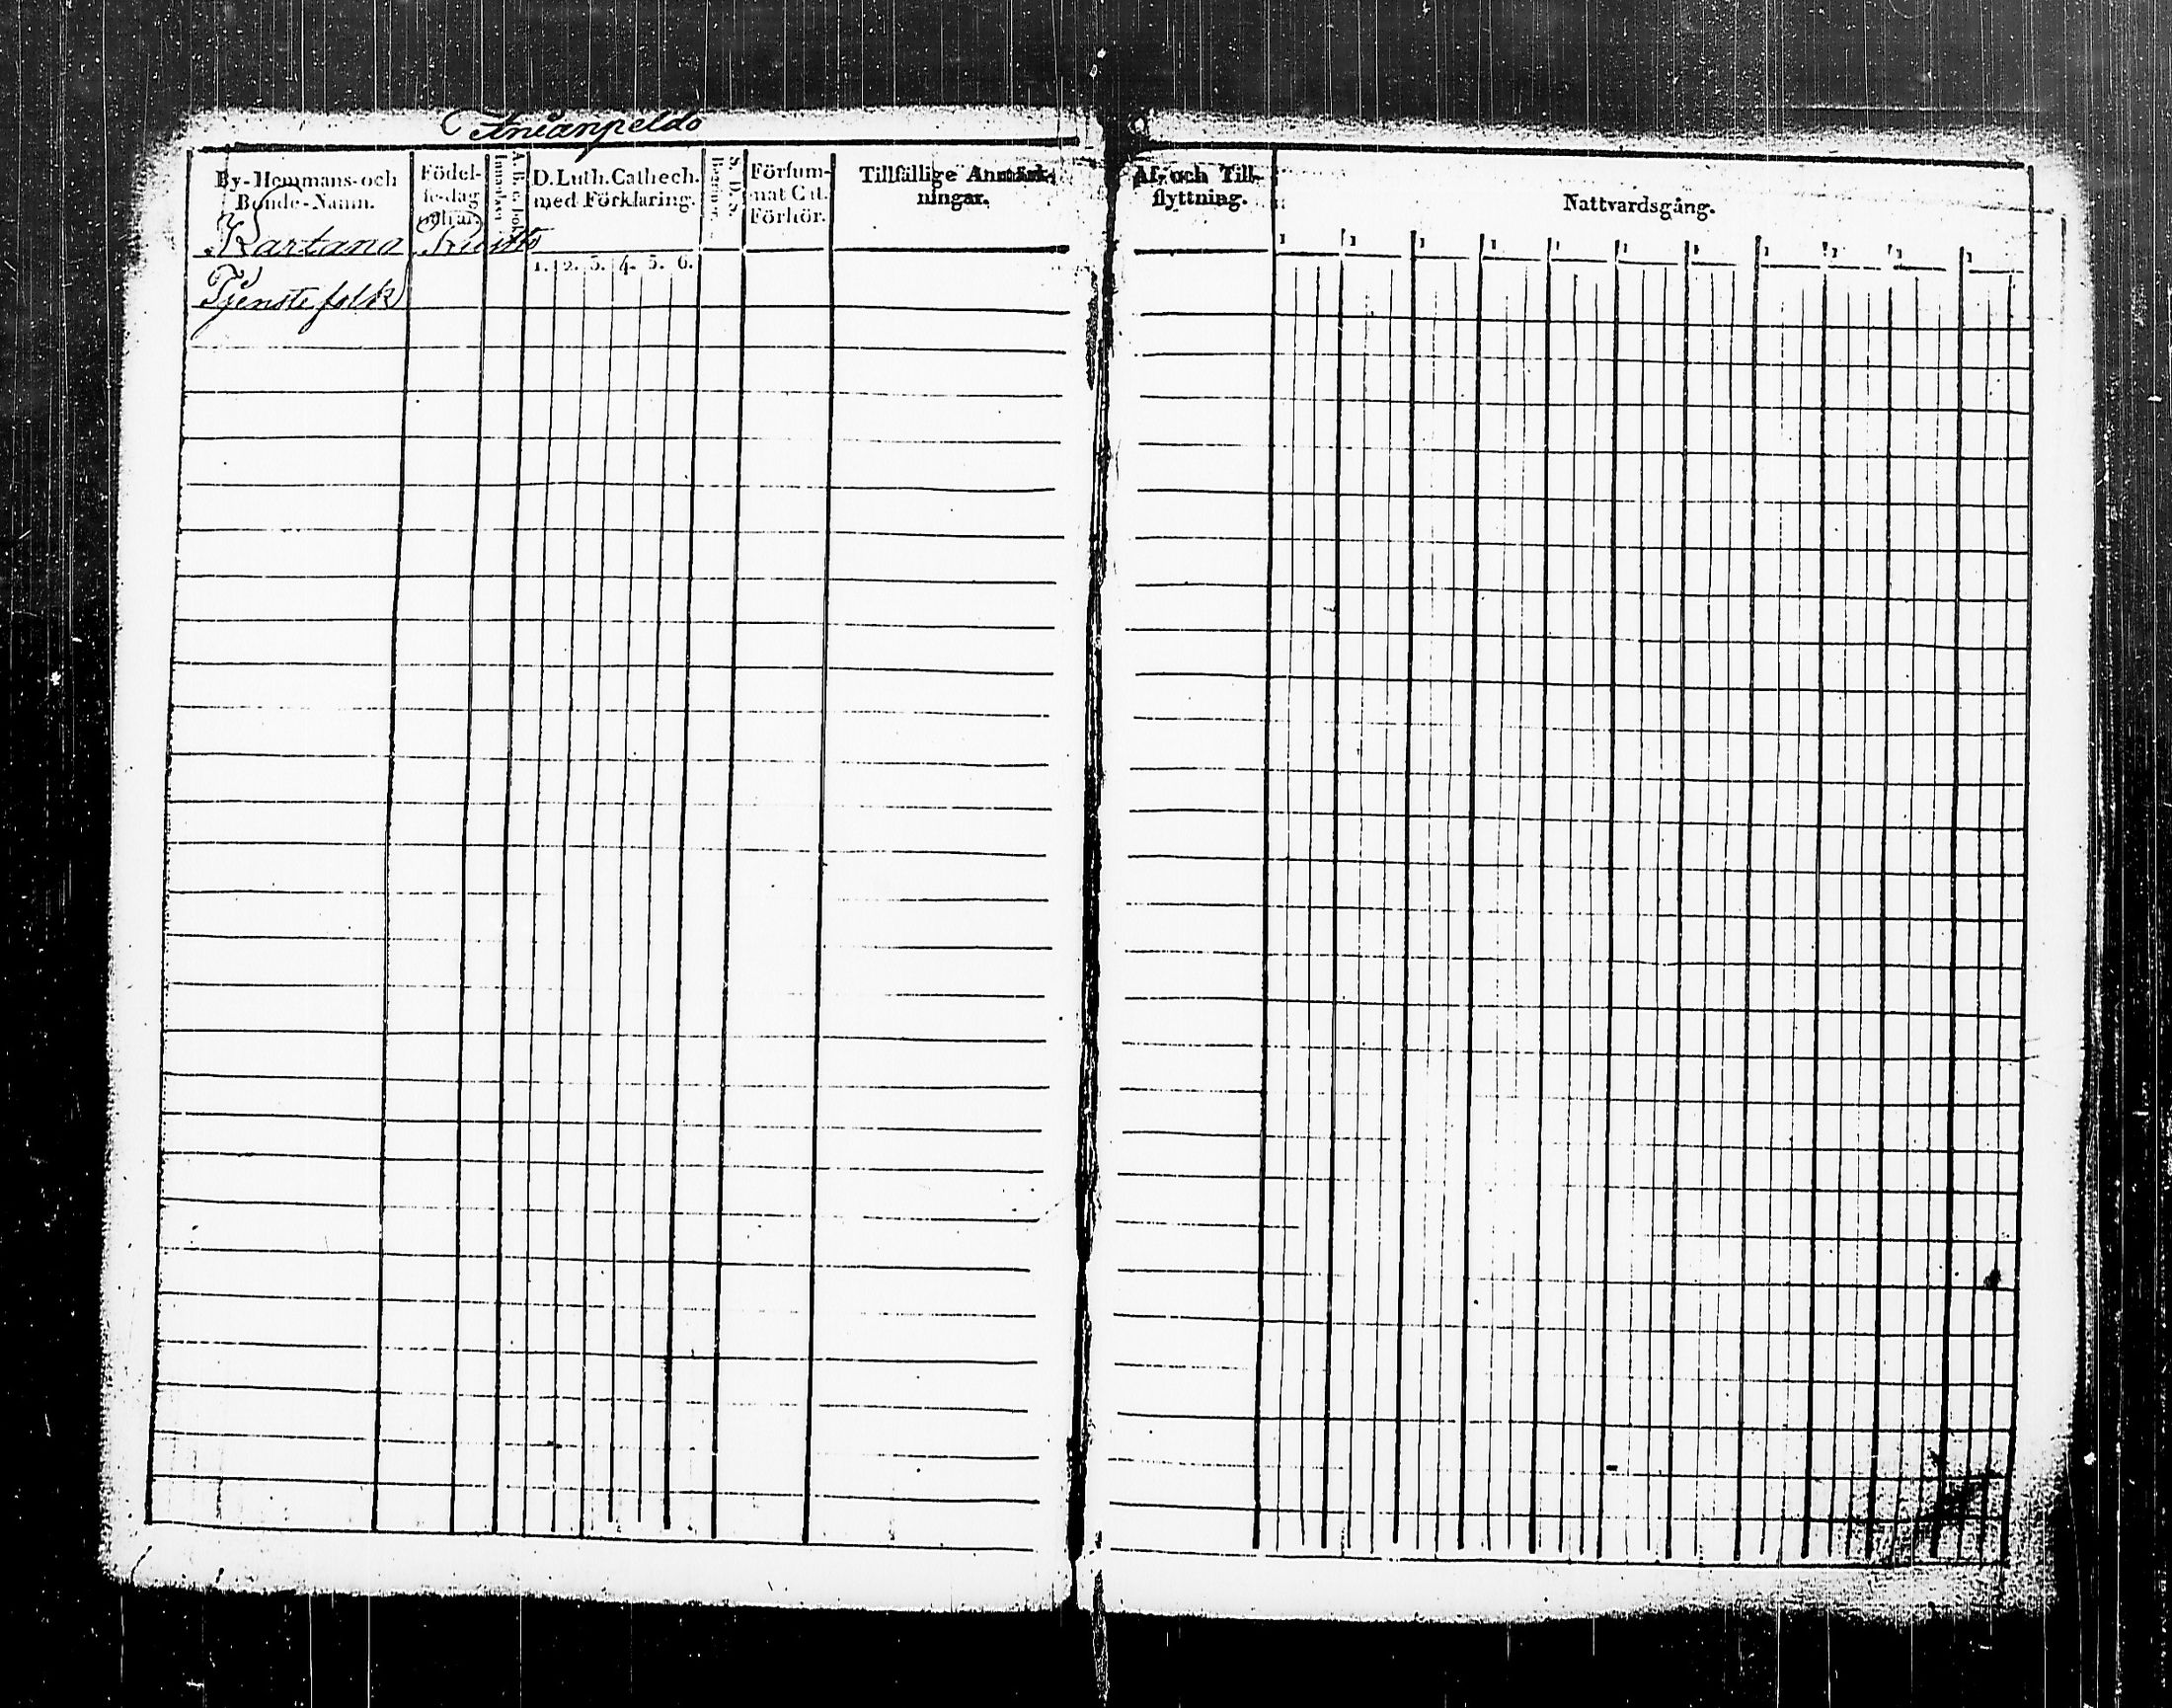 Anianpeldo
By-Hemmans-och
Bonde-Namn.
Födel-
se-dag
och år.
A. B. C. bok
Innanläsn.
D. Luth. Cathech.
med Förklaring.
1. 2. 3. 4. 5. 6.
S. D. s.
Försum-
nat Cat.
Förhör.
Tillfällige Anmärk-
ningar.
Kartano
Tjenstefolk
Af- och Till-
flyttning.
Nattvardsgång.
1 1 1 1 1 1 1 1 1 1 1